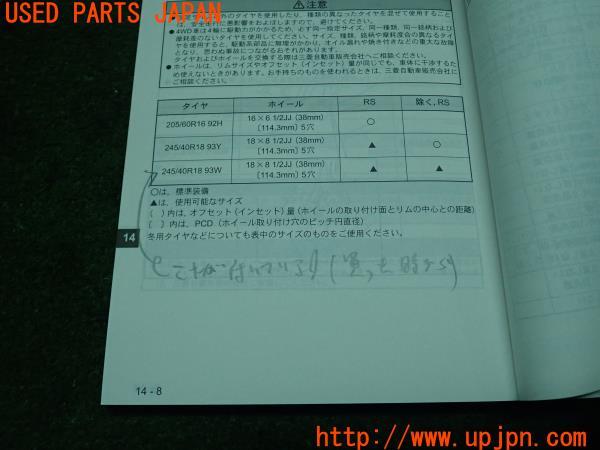 USED PARTS JAPAN
注意
外のタイヤを使用したり、種類の異なったタイヤを混ぜて使用すること
は、安全走行に悪影響をおよぼしますので、避けてください。
●4WD車は4輪に駆動力がかかるため、必ず同一指定サイズ、同一種類、同一銘柄および
摩耗差のないタイヤを使用してください。サイズ、種類、銘柄や摩耗度合の異なるタイ
ヤを使用すると、駆動系部品に無理がかかり、オイル漏れや焼き付きなどの重大な故障
となり、思わぬ事故につながるおそれがあります。
タイヤおよびホイールを交換する際は三菱自動車販売会社へご相談ください。
●ホイールは、リムサイズやオフセット(インセット)量が同じでも、車体に干渉するた
め使えないときがあります。お手持ちのものを使われるときは、三菱自動車販売会社に
ご相談ください。
タイヤ ホイール RS 除く, RS
205/60R16 92H 16×6 1/2JJ (38mm) 〔114.3mm〕5穴 ○
245/40R18 93Y 18×8 1/2JJ (38mm) 〔114.3mm〕5穴 ▲ ○
245/40R18 93W 18×8 1/2JJ (38mm) 〔114.3mm〕5穴 ▲ ▲
○は、標準装備
▲は、使用可能なサイズ
( )内は、オフセット(インセット)量(ホイールの取り付け面とリムの中心との距離)
〔 〕内は、PCD(ホイール取り付け穴のピッチ円直径)
冬用タイヤなどについても表中のサイズのものをご使用ください。
14
14-8
http://www.upjpn.com